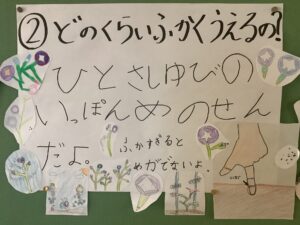 ②どのくらいふかくうえるの?
ひとさしゆびの
いっぽんめのせん
だよ。
ふかすぎると
めがでないよ